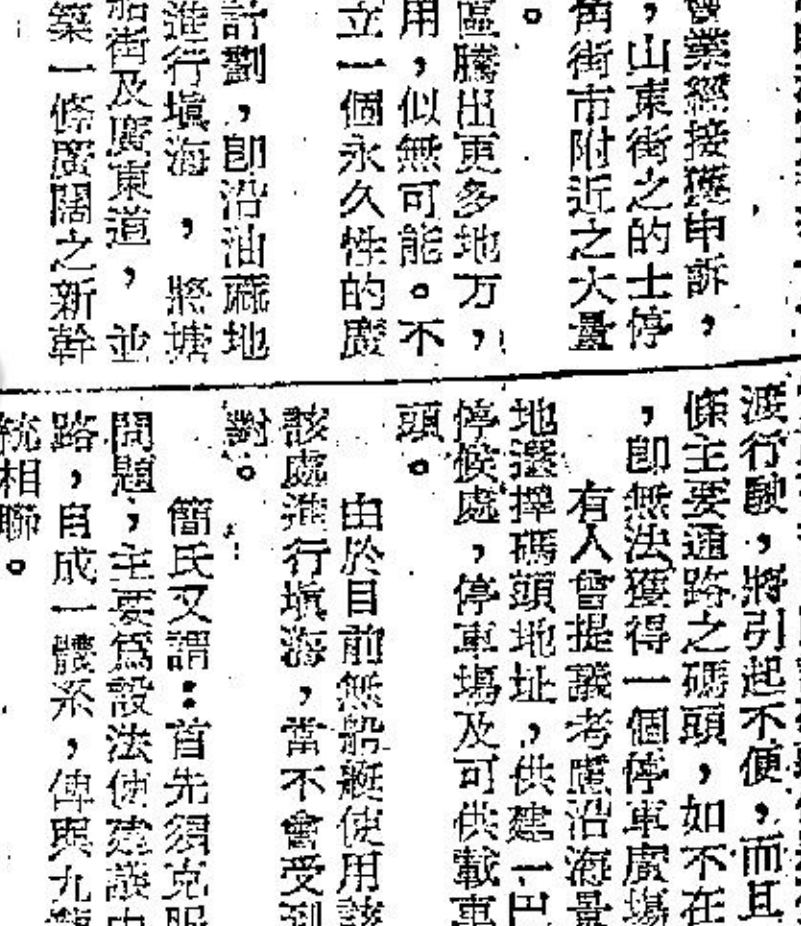 會業經接獲申訴，
，山東街之的士停
角街市附近之大量
。
區騰出更多地方，
用，似無可能。不
立一個永久性的廣
計劃，即沿油蔴地
進行塡海，將塘
船街及廣東道，並
築一條廣闊之新幹
渡行駛，將引起不便，而且
條主要通路之碼頭，如不在
，即無法獲得一個停車廣場
有人曾提議考慮沿海景
地選擇碼頭地址，供建一巴
停候處，停車場及可供載車
頭。
由於目前無船艇使用該
該處進行塡海，當不會受到
對。
簡氏又謂：首先須克服
問題，主要爲設法使建議中
路，自成一體系，俾與九龍
統相聯。